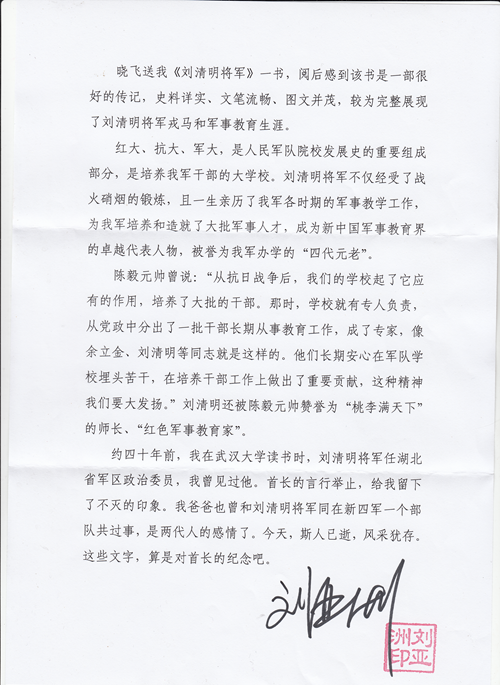 晓飞送我《刘清明将军》一书，阅后感到该书是一部很
好的传记，史料详实、文笔流畅、图文并茂，较为完整展现
了刘清明将军戎马和军事教育生涯。
红大、抗大、军大，是人民军队院校发展史的重要组成
部分，是培养我军干部的大学校。刘清明将军不仅经受了战
火硝烟的锻炼，且一生亲历了我军各时期的军事教学工作，
为我军培养和造就了大批军事人才，成为新中国军事教育界
的卓越代表人物，被誉为我军办学的“四代元老”。
陈毅元帅曾说：“从抗日战争后，我们的学校起了它应
有的作用，培养了大批的干部。那时，学校就有专人负责，
从党政中分出了一批干部长期从事教育工作，成了专家，像
余立金、刘清明等同志就是这样的。他们长期安心在军队学
校埋头苦干，在培养干部工作上做出了重要贡献，这种精神
我们要大发扬。”刘清明还被陈毅元帅赞誉为“桃李满天下”
的师长、“红色军事教育家”。
约四十年前，我在武汉大学读书时，刘清明将军任湖北
省军区政治委员，我曾见过他。首长的言行举止，给我留下
了不灭的印象。我爸爸也曾和刘清明将军同在新四军一个部
队共过事，是两代人的感情了。今天，斯人已逝，风采犹存。
这些文字，算是对首长的纪念吧。
刘亚洲
刘亚洲印